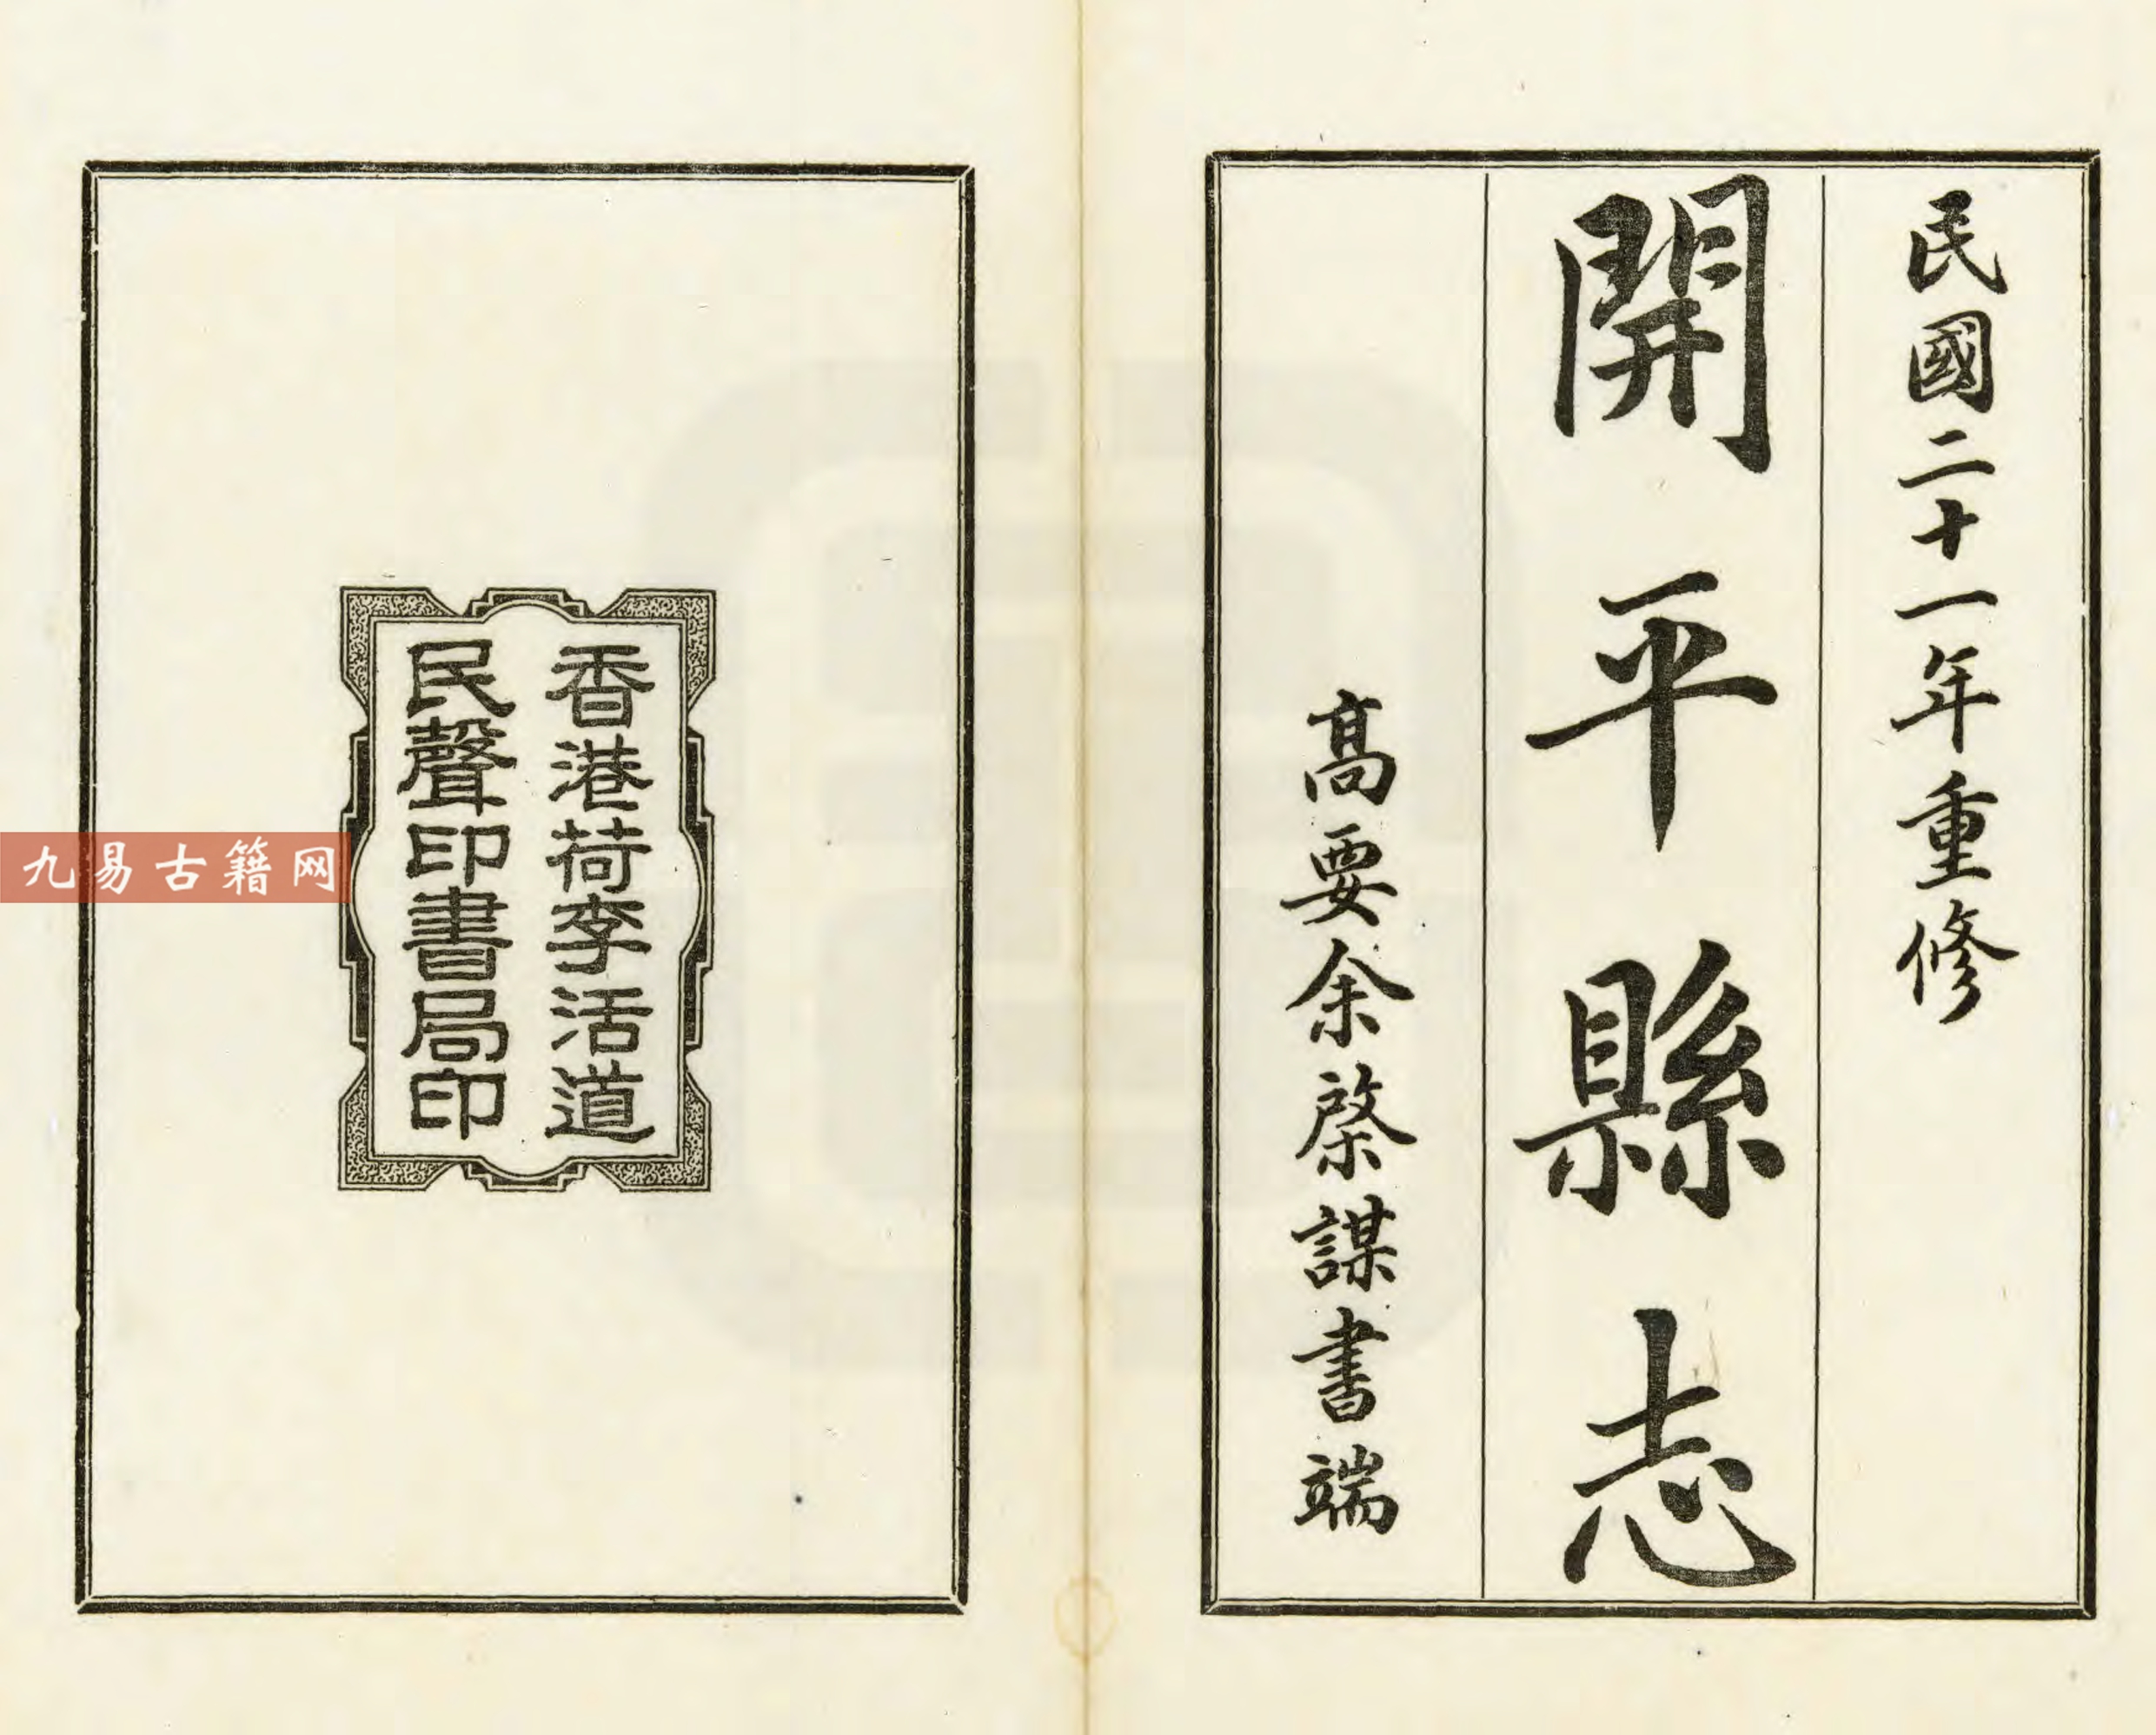 民國二十一年重修
開平縣志
高要余棨謀書端
香港荷李活道
民聲印書局印
九易古籍网